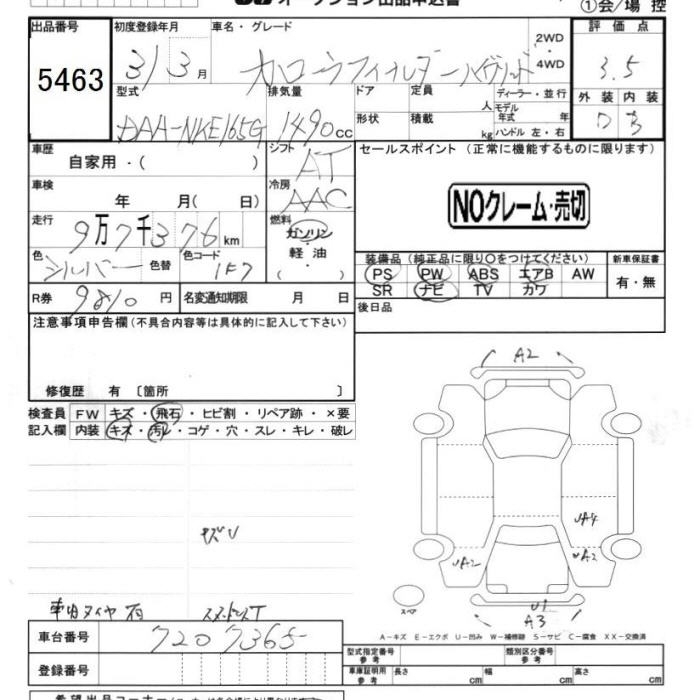 オークション出品申込書
①会/場 控
出品番号
5463
初度登録年月
31 3月
車名・グレード
カローラフィールダーハイブリッド
2WD
4WD
評価点
3.5
外装 内装
D B
型式
DAA-NKE165G
排気量
1490cc
ドア
形状
定員
人
積載
kg
ディーラー・並行
モデル年式 年
ハンドル 左・右
車歴
自家用・( )
シフト
AT
セールスポイント (正常に機能するものに限ります)
NOクレーム・売切
車検
年 月( 日)
冷房
AAC
走行
9万7千376km
燃料
ガソリン
軽油
( ・ )
色
シルバー
色替
色コード
1F7
装備品(純正品に限り○をつけてください)
PS PW ABS エアB AW
SR ナビ TV カワ
新車保証書
有・無
R券
9810円
名変通知期限 月 日
後日品
注意事項申告欄(不具合内容等は具体的に記入して下さい)
修復歴 有〔箇所 〕
検査員
記入欄
FW キズ・飛石・ヒビ割・リペア跡・×要
内装 キズ・汚レ・コゲ・穴・スレ・キレ・破レ
キズU
車内タイヤ有
スタッドレスT
A2
UA4
UA2
UA2
U1
A3
スペア
A-キズ E-エクボ U-凹み W-補修跡 S-サビ C-腐食 XX-交換済
車台番号
7207365
登録番号
型式指定番号
参考
類別区分番号
参考
車庫証明用
参考
長さ cm
幅 cm
高さ cm